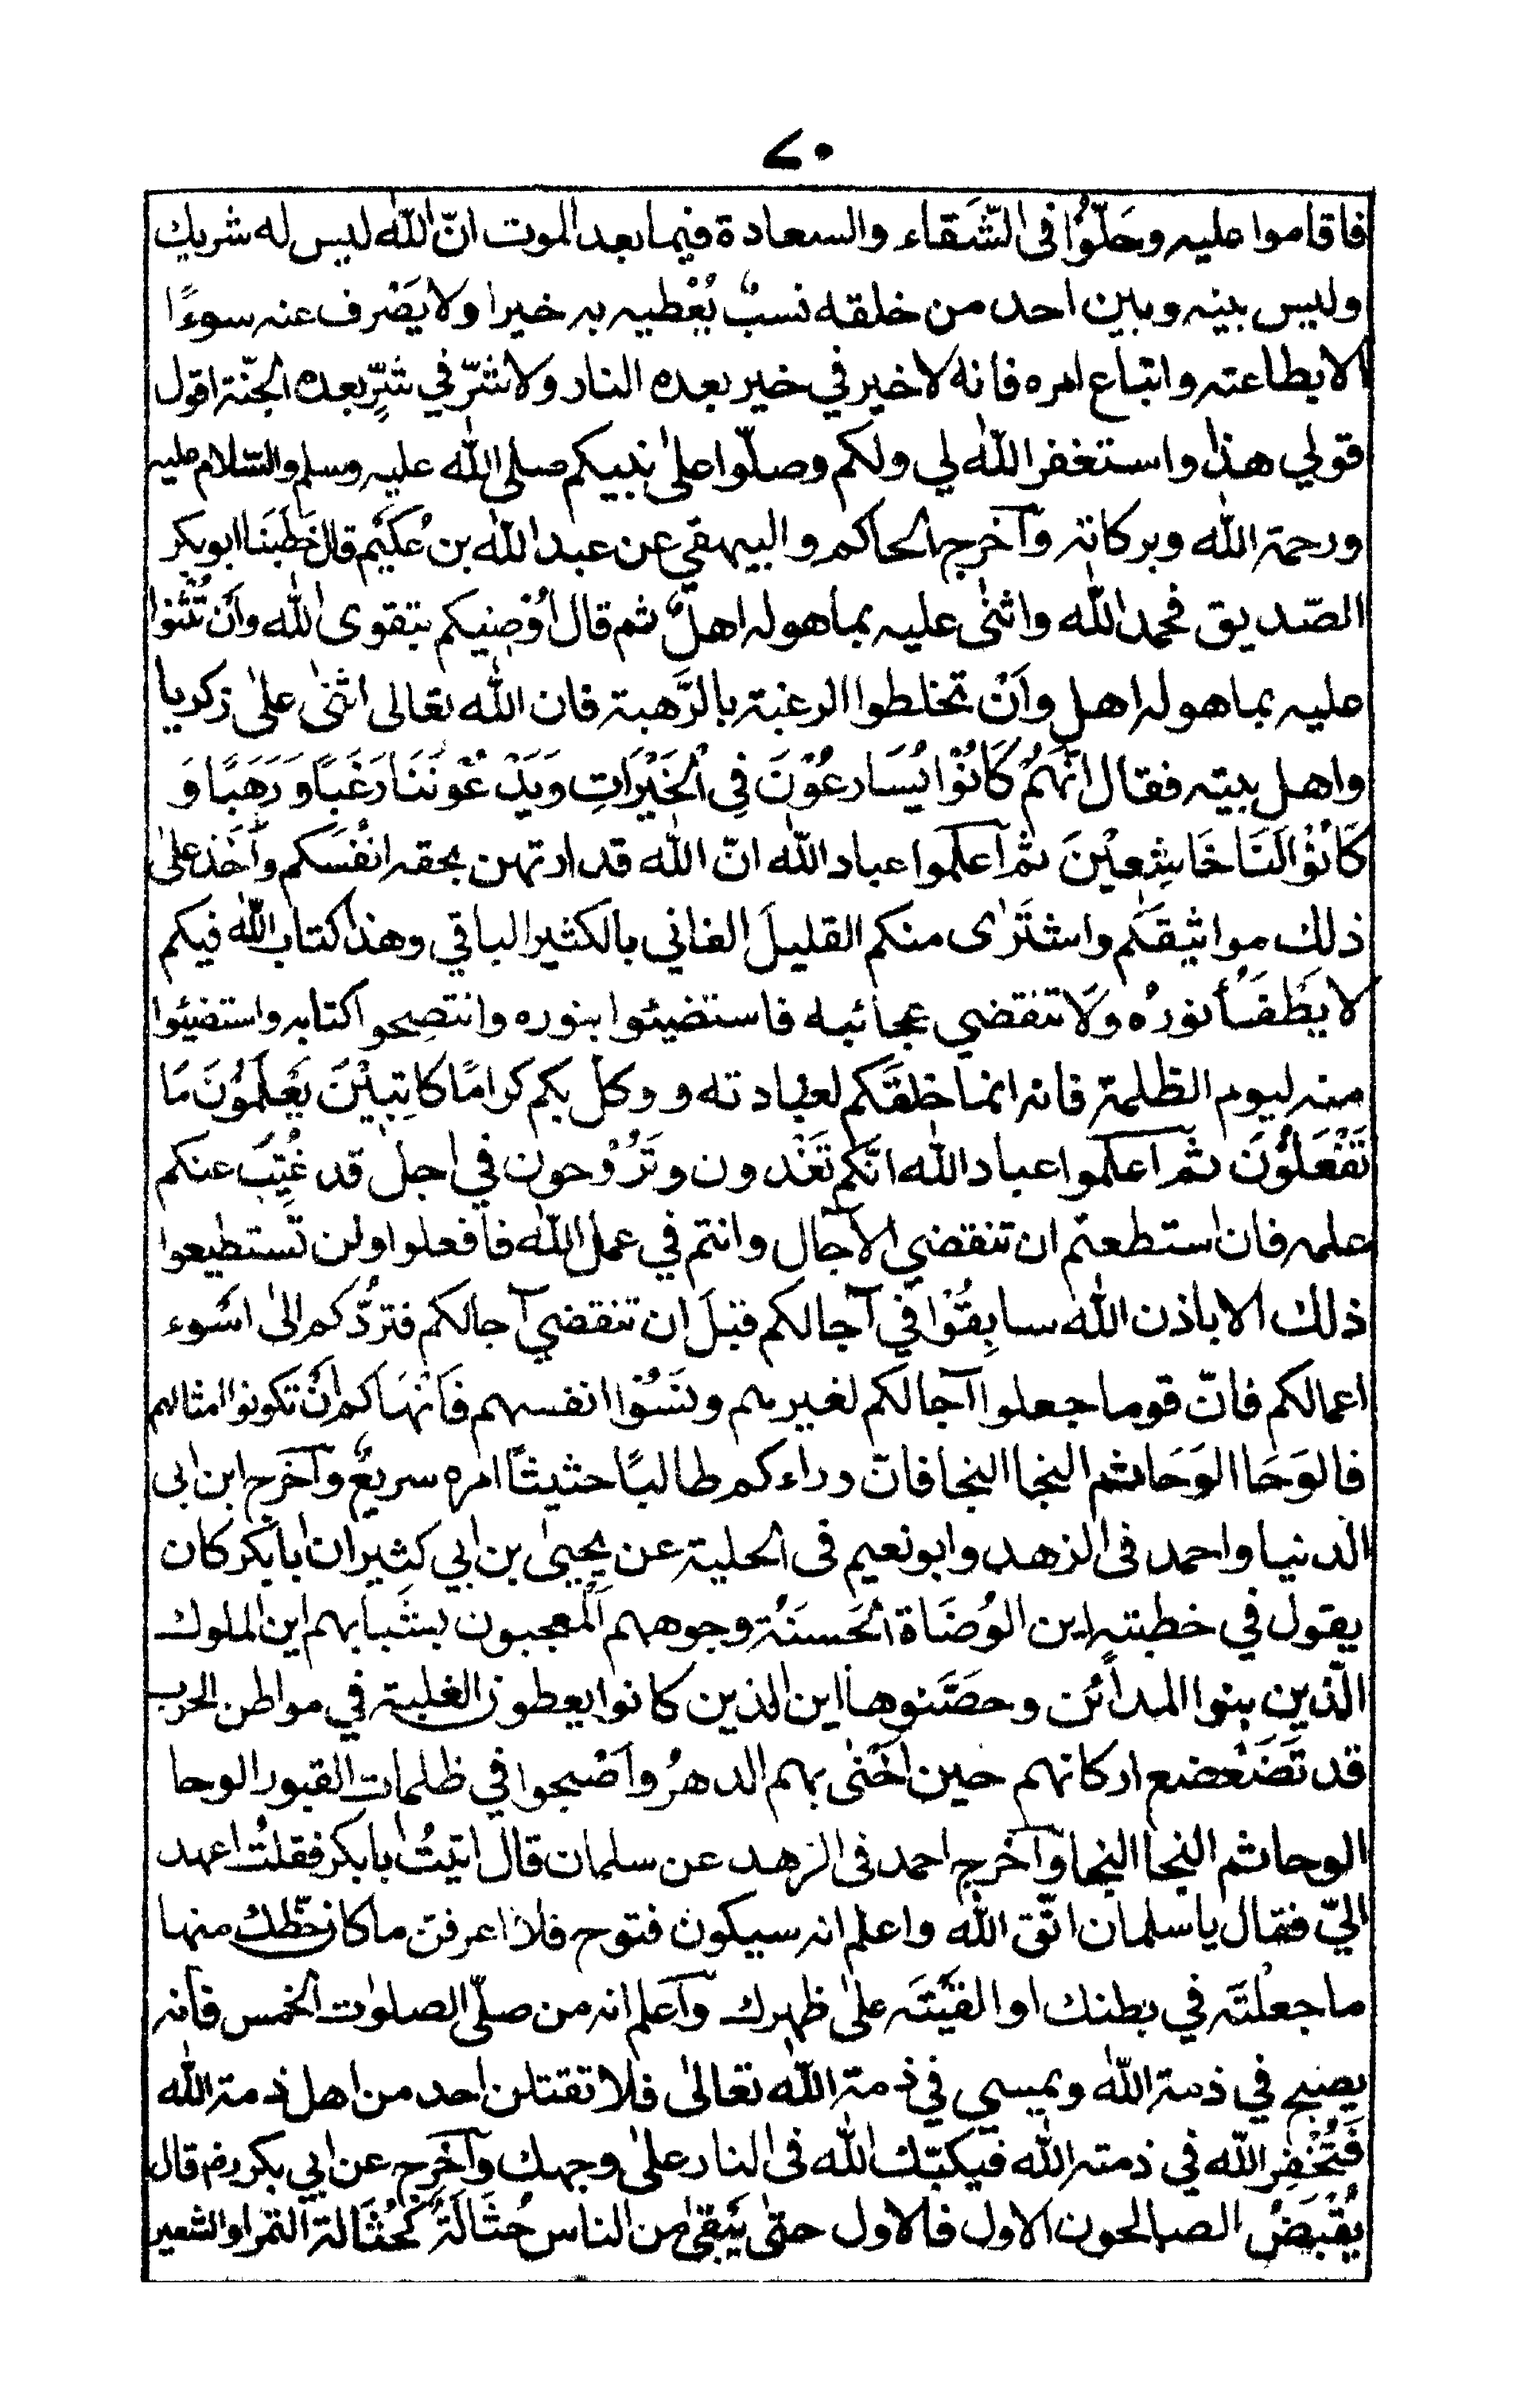 ٧٠
فاقاموا عليه وحَلّوُا فى الشَّقاء والسعادة فيما بعد الموت انّ الله ليس له شريك
وليس بينه وبين احد من خلقه نسبٌ يُعْطيه به خيرا ولا يَصْرف عنه سوءًا
الا بطاعته واتباع امره فانه لا خير في خير بعده النار ولا شرّ في شرٍّ بعده الجنّة اقول
قولي هذا واستغفر الله لي ولكم وصلّوا على نبيكم صلى الله عليه وسلم والسّلام عليه
ورحمة الله وبركاته وآخرج الحاكم والبيهقي عن عبد الله بن عُكَيْم قال خَطَبَنا ابوبكر
الصّديق فحمد الله واثنى عليه بما هو له اهلٌ ثم قال اُوْصيكم بتقوى الله وأن تُثْنوا
عليه بما هو له اهل وأنْ تخلطوا الرغبة بالرَّهبة فان الله تعالى اثنى على زكريا
واهل بيته فقال انَّهُمْ كَانُوْا يُسَارعُوْنَ فِى الْخَيْرَاتِ وَيَدْعُوْنَنَا رَغَبًا وَرَهَبًا وَ
كَانُوْا لَنَا خَاشِعِيْنَ ثم آعلموا عباد الله انّ الله قد ارتهن بحقه انفُسَكم وآخذ على
ذلك مواثيقَكم واشتَرٰى منكم القليلَ الفاني بالكثير الباقي وهذا كتاب الله فيكم
لا يطْفَأُ نورُه ولا تنقضي عجائبه فاستضيئوا بنوره وانتصِحوا كتابه واستضيئوا
منه ليوم الظلمة فانه انما خلقَكم لعبادته ووكل بكم كرامًا كاتِبِيْنَ يَعْلَمُوْنَ مَا
تَفْعَلُوْنَ ثم آعلموا عباد الله انّكم تَغْدون وتَرُوْحون في اجل قد غُيِّبَ عنكم
علمه فان استطعتم ان تنقضي الآجال وانتم في عمل الله فافعلوا ولن تستطيعوا
ذلك الا باذن الله سابِقُوْا في آجالكم قبلَ ان تنقضي آجالكم فتردُّكم الى اسْوء
اعمالكم فانّ قوما جعلوا آجالكم لغيرهم ونَسُوْا انفسهم فَاَنْهَاكم اَنْ تكونوا امثالهم
فالوَحَا الوَحَا ثم النجا النجا فانّ وراءكم طالبًا حثيثًا امره سريعٌ وآخرج ابن ابى
الدنيا واحمد فى الزهد وابونعيم فى الحلية عن يحيى بن ابي كثير ان ابا بكر كان
يقول في خطبته اين الوُضَاة الحَسنَة وجوههم المُعجبون بشَبابهم اين الملوك
الّذين بنوا المدائن وحصَّنوها اين الذين كانوا يعطون الغلبة في مواطن الحرب
قد تَضَعْضع اركانهم حين آخْنٰى بهم الدهرُ واَصْبحوا في ظلمات القبور الوحا
الوحا ثم النجا النجا وآخرج احمد فى الزهد عن سلمان قال اتيتُ بابكر فقلتُ اعهد
اليّ فقال يا سلمان اتّق الله واعلم انه سيكون فتوح فلا اعرفن ما كان حَظّك منها
ما جعلتَه في بطنك او القيْتَه على ظهرك وآعلم انه من صلّى الصلوٰت الخمس فانه
يصبح في ذمة الله ويمسي في ذمة الله تعالى فلا تقتلن احد من اهل ذمة الله
فَتُخْفِر الله في ذمته الله فيكبّك الله فى النار على وجهك وآخرج عن ابي بكر رض قال
يُقْبَضُ الصالحون الاول فالاول حتى يَبْقٰى من الناس حُثَالَةٌ كَحُثَالة التمر او الشعير